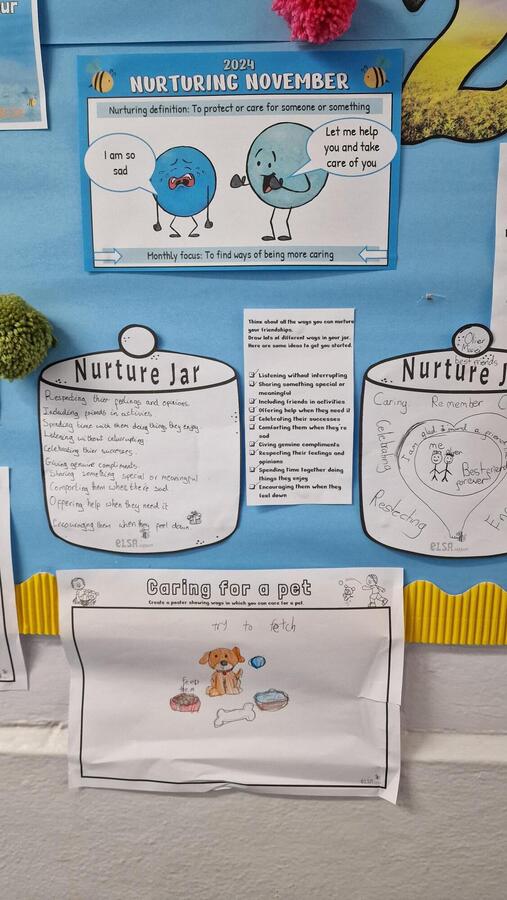 ur
2024
NURTURING NOVEMBER
Nurturing definition: To protect or care for someone or something
I am so
sad
Let me help
you and take
care of you
Monthly focus: To find ways of being more caring
Nurture Jar
Respecting thier feelings and opinions.
Including friends in activities
Spending time with them doing things they enjoy.
Listening without interrupting
Celebrating their successes.
Giving genuine compliments.
Sharing something special or meaningful
Comforting them when there sad
Offering help when they need it
Encouraging them when they feel down
ELSA support
Think about all the ways you can nurture
your friendships.
Draw lots of different ways in your jar.
Here are some ideas to get you started.
Listening without interrupting
Sharing something special or
meaningful
Including friends in activities
Offering help when they need it
Celebrating their successes
Comforting them when they're
sad
Giving genuine compliments
Respecting their feelings and
opinions
Spending time together doing
things they enjoy
Encouraging them when they
feel down
best friends
Nurture J
Caring
Remember
Celebrating
me
Best friend
forever
Restecting
ELSA support
Caring for a pet
Create a poster showing ways in which you can care for a pet.
try to fetch
feed
ELSA